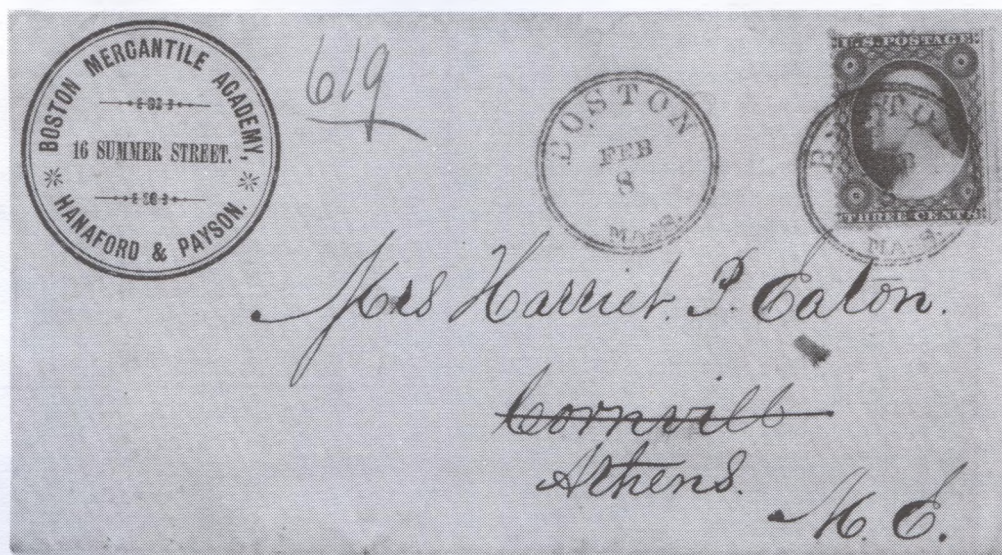 BOSTON MERCANTILE ACADEMY,
16 SUMMER STREET.
HANAFORD & PAYSON.
619
BOSTON
FEB
8
MASS.
U.S. POSTAGE
THREE CENTS
BOSTON
MASS.
Mrs Harriet. P. Eaton.
Cornvill
Athens.
M. E.